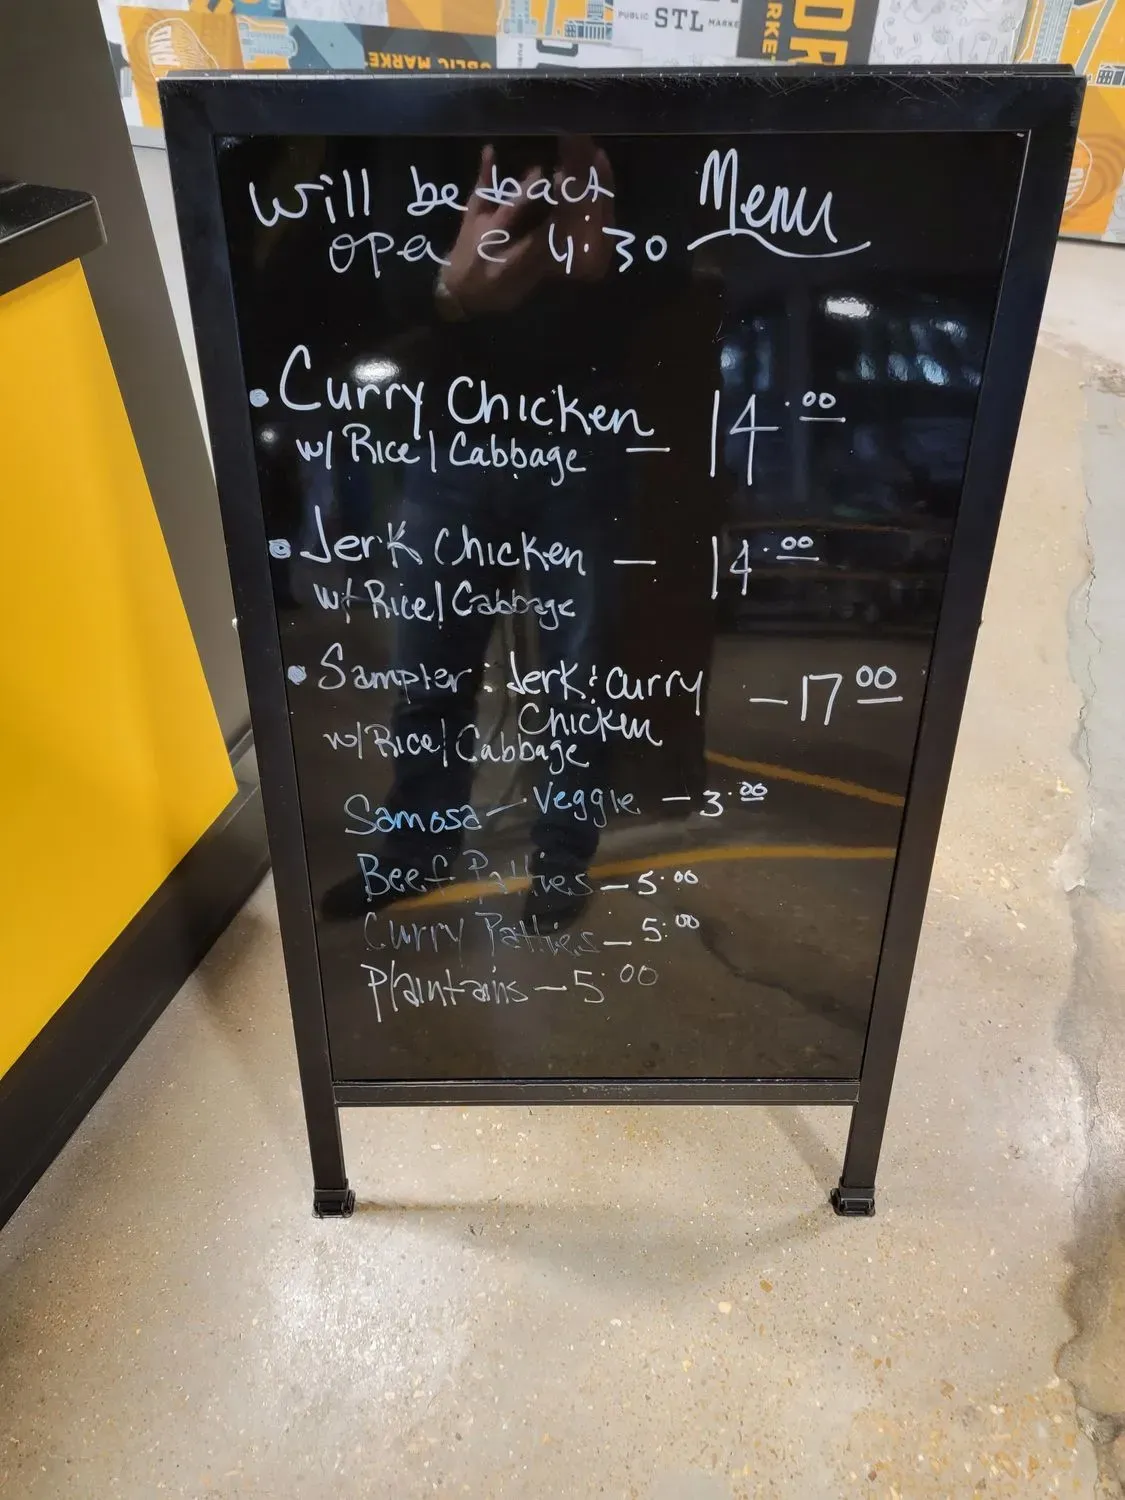 PUBLIC STL MARKE
PUBLIC MARKE
will be back
open @ 4:30
Menu
• Curry Chicken
w/ Rice / Cabbage — 14.00
• Jerk Chicken — 14.00
w/ Rice / Cabbage
• Sampler: Jerk & Curry — 17 00
Chicken
w/ Rice / Cabbage
Samosa — Veggie — 3.00
Beef Patties — 5.00
Curry Patties — 5.00
Plaintains — 5.00